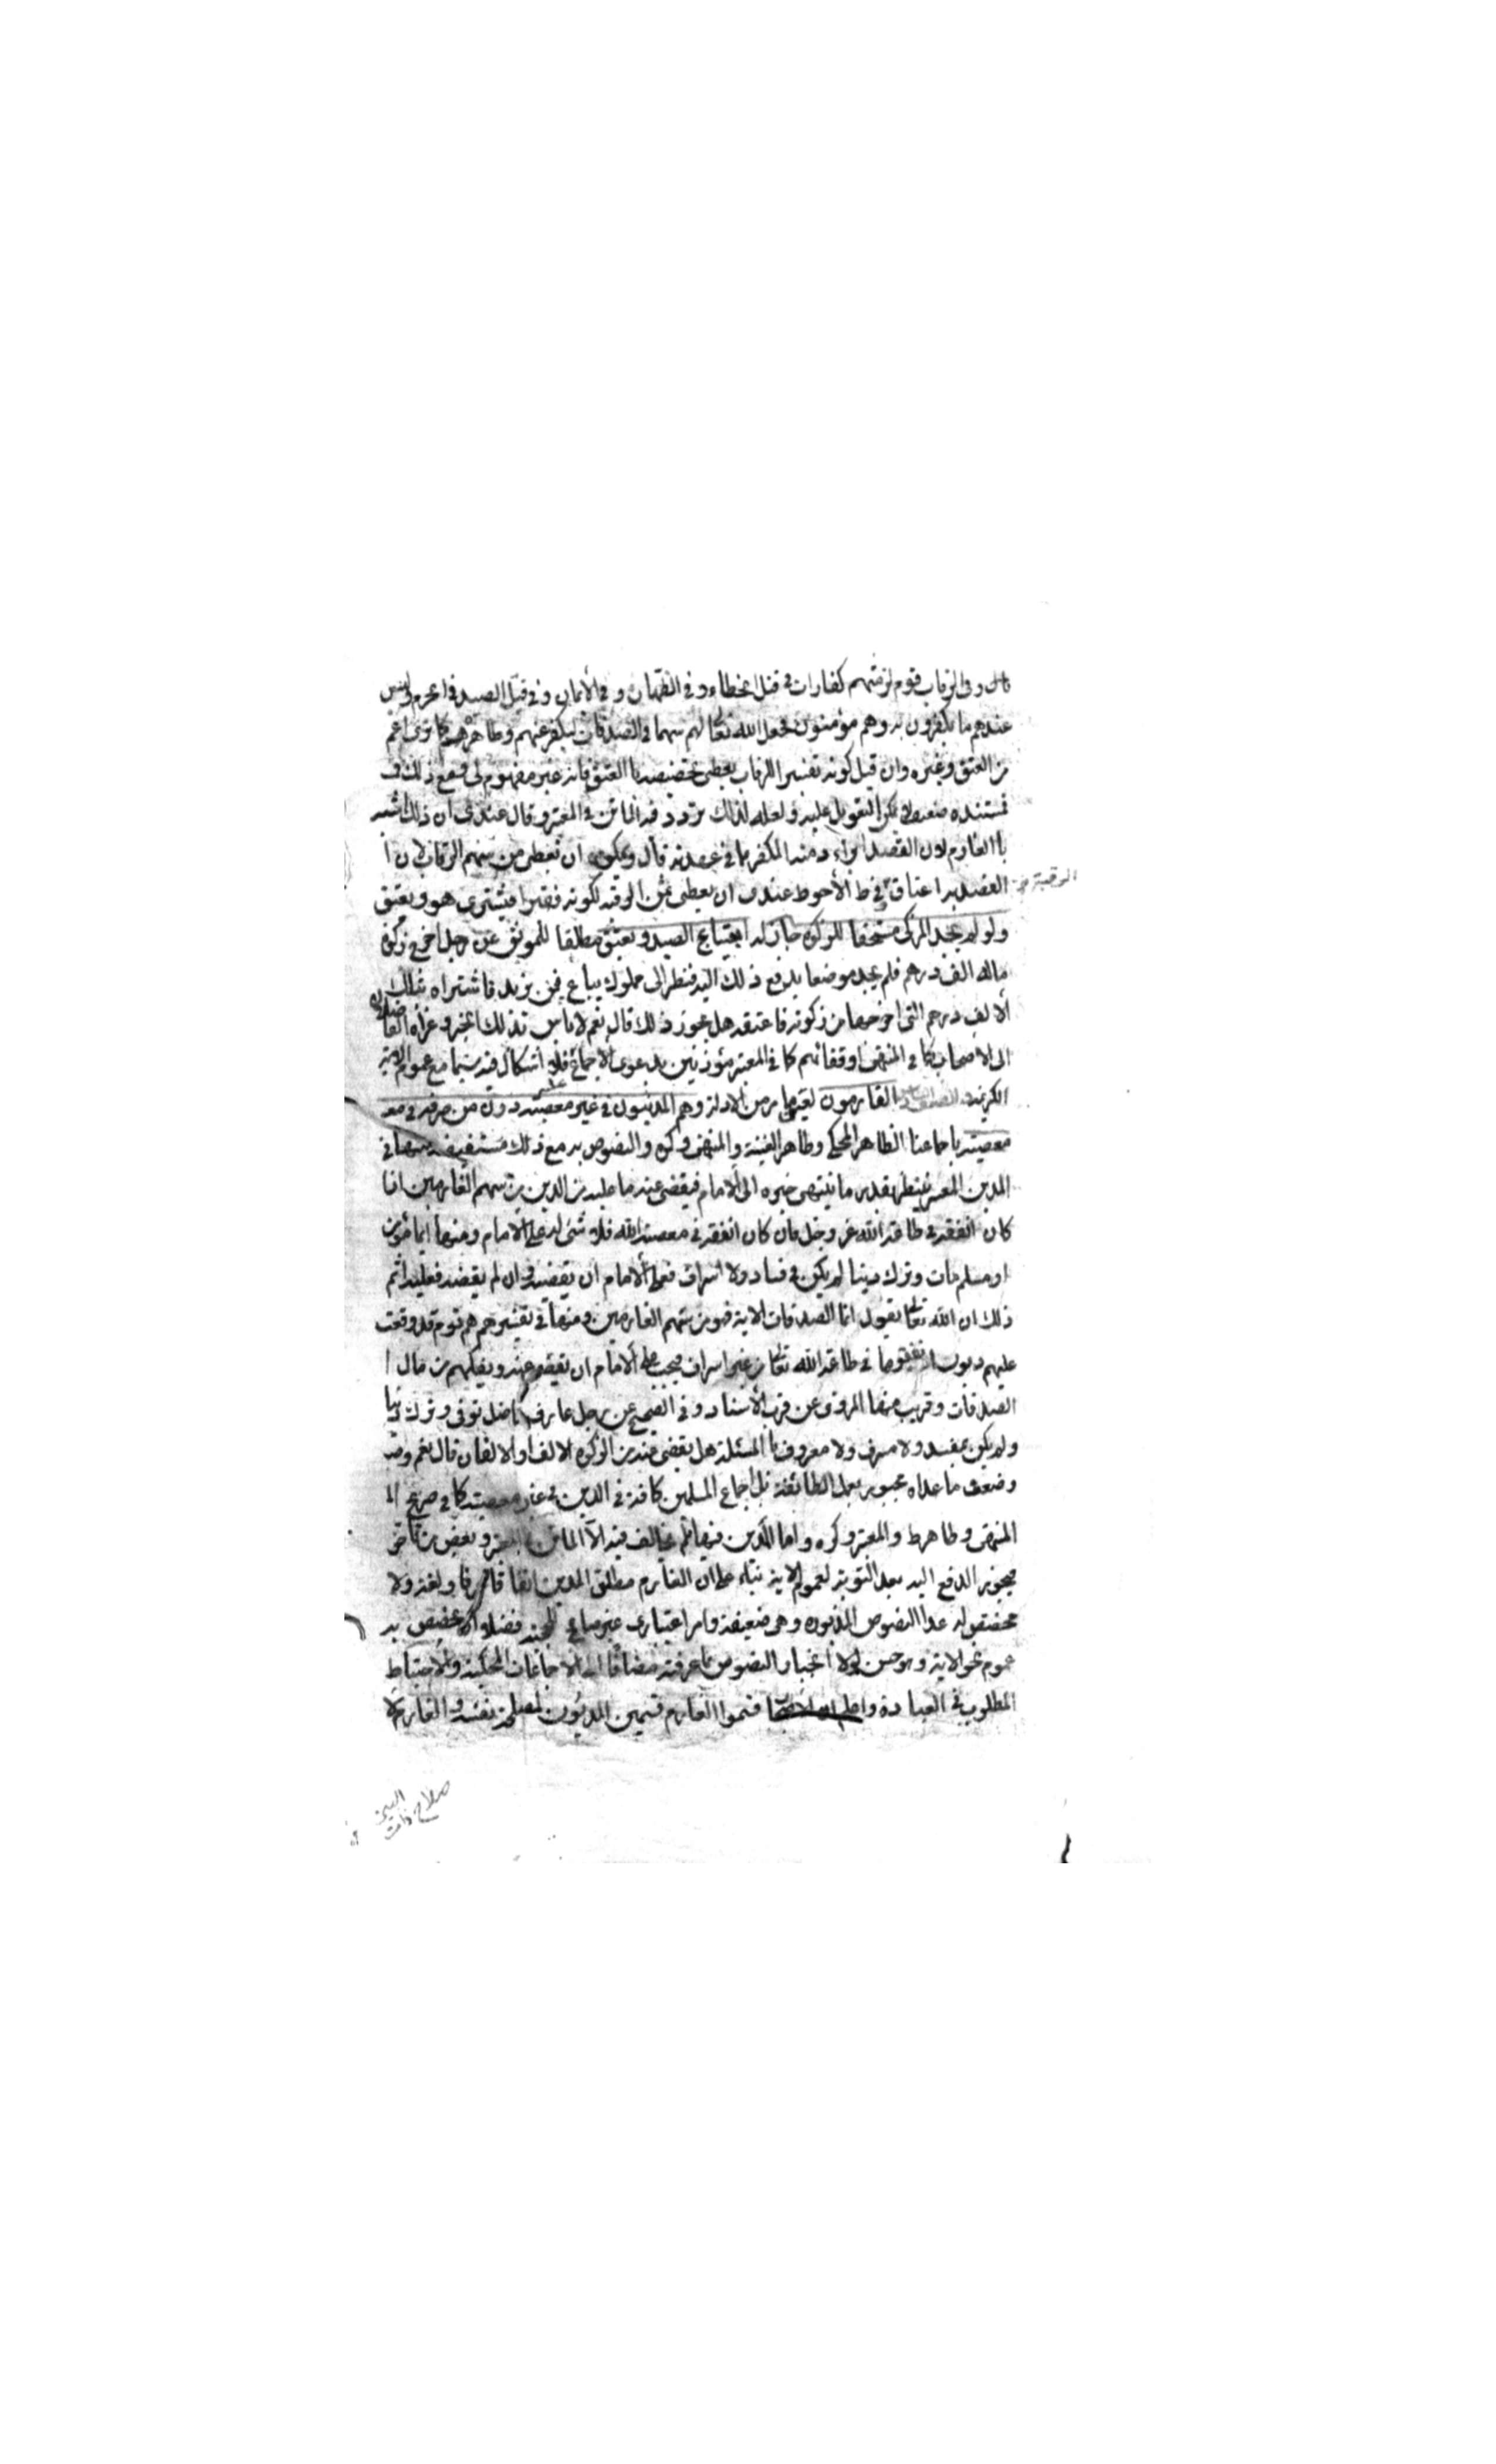 قال وفى الرقاب قوم لزمتهم كفارات في قتل الخطاء وفي الظهار وفي الأيمان وفي قتل الصيد في الحرم وليس
عندهم ما يكفرون به وهم مؤمنون فجعل الله تعالى لهم سهما في الصدقات ليكفر عنهم وظاهره كما ترى اعم
من العتق وغيره وان قيل كونه تفسير الرقاب يعطى تخصيصه بالعتق فانه غير مفهوم لي ومع ذلك ف
فمستنده ضعيف لا يمكن التعويل عليه ولعله لذلك تردد فيه الماتن في المعتبر وقال عندي ان ذلك اشبه
بالغارم لان القصد ابراء ذمة المكفر مما في عهدته قال ويمكن ان يعطى من سهم الرقاب لان ا
القصد به اعتاق وفي ط الأحوط عندي ان يعطى ثمن الرقبة لكونه فقيرا فيشترى هو ويعتق
الرقبة
ولو لم يجد المزكى مستحقا للزكوة جاز له ابتياع العبد ويعتق مطلقا للموثق عن رجل اخرج زكوة
ماله الف درهم فلم يجد موضعا يدفع ذلك اليه فنظر الى مملوك يباع فيمن يزيد فاشتراه بتلك
الألف درهم التى اخرجها من زكوته فاعتقه هل يجوز ذلك قال نعم لا بأس بذلك الخبر وعزاه الفاضلان
الى الاصحاب كما في المنتهى او فقهائهم كما في المعتبر مؤذنين بدعوى الاجماع فلا اشكال فيه سيما مع عموم الاية
الكريمة والغارمون لغيرها من الادلة وهم المدينون في غير معصية دون من صرفه في مع
معصية باجماعنا الظاهر المحكى وظاهر الغنية والمنتهى وكره والنصوص به مع ذلك مستفيضة منها في
المدين المعسر ينتظر بقدر ما ينتهى خبره الى الامام فيقضى عنه ما عليه من الدين من سهم الغارمين اذا
كان انفقه في طاعة الله عز وجل فان كان انفقه في معصية الله فلا شئ له على الامام ومنها ايما مؤمن
او مسلم مات وترك دينا لم يكن في فساد ولا اسراف فعلى الامام ان يقضيه وان لم يقضه فعليه اثم
ذلك ان الله تعالى يقول انما الصدقات الاية فهو من سهم الغارمين ومنها في تفسيرهم هم قوم قد وقعت
عليهم ديون انفقوها في طاعة الله تعالى من غير اسراف فيجب على الامام ان يقضى عنهم ويفكهم من مال ا
الصدقات وقريب منها المروى عن قرب الأسناد وفي الصحيح عن رجل عارف فاضل توفى وترك دينا
ولم يكن بمفسد ولا مسرف ولا معروف بالمسئلة هل يقضى عنه من الزكوة الالف او الالفان قال نعم
وضعف ما عداه مجبور بعمل الطائفة بل اجماع المسلمين كافة في الدين في غير معصية كما في صريح ا
المنتهى وظاهر ط والمعتبر وكره واما الدين فيها فلم يخالف فيه الا الماتن في المعتبر وبعض من تأخر
فيجوز الدفع اليه بعد التوبة لعموم الاية بناء على ان الغارم مطلق المدين اتفاقا عرفا ولغة ولا
مخصص له عدا النصوص المذبوره وهى ضعيفة وامر اعتبارى غير صالح للحجية فضلا ان يخصص به
عموم نحو الاية وهو حسن لولا انجبار النصوص بما عرفته مضافا الى الاجماعات المحكية والاحتياط
المطلوب في العبادة قسموا الغارم قسمين المديون لمصلحة نفسه والغارم لا
صلاح ذات البين